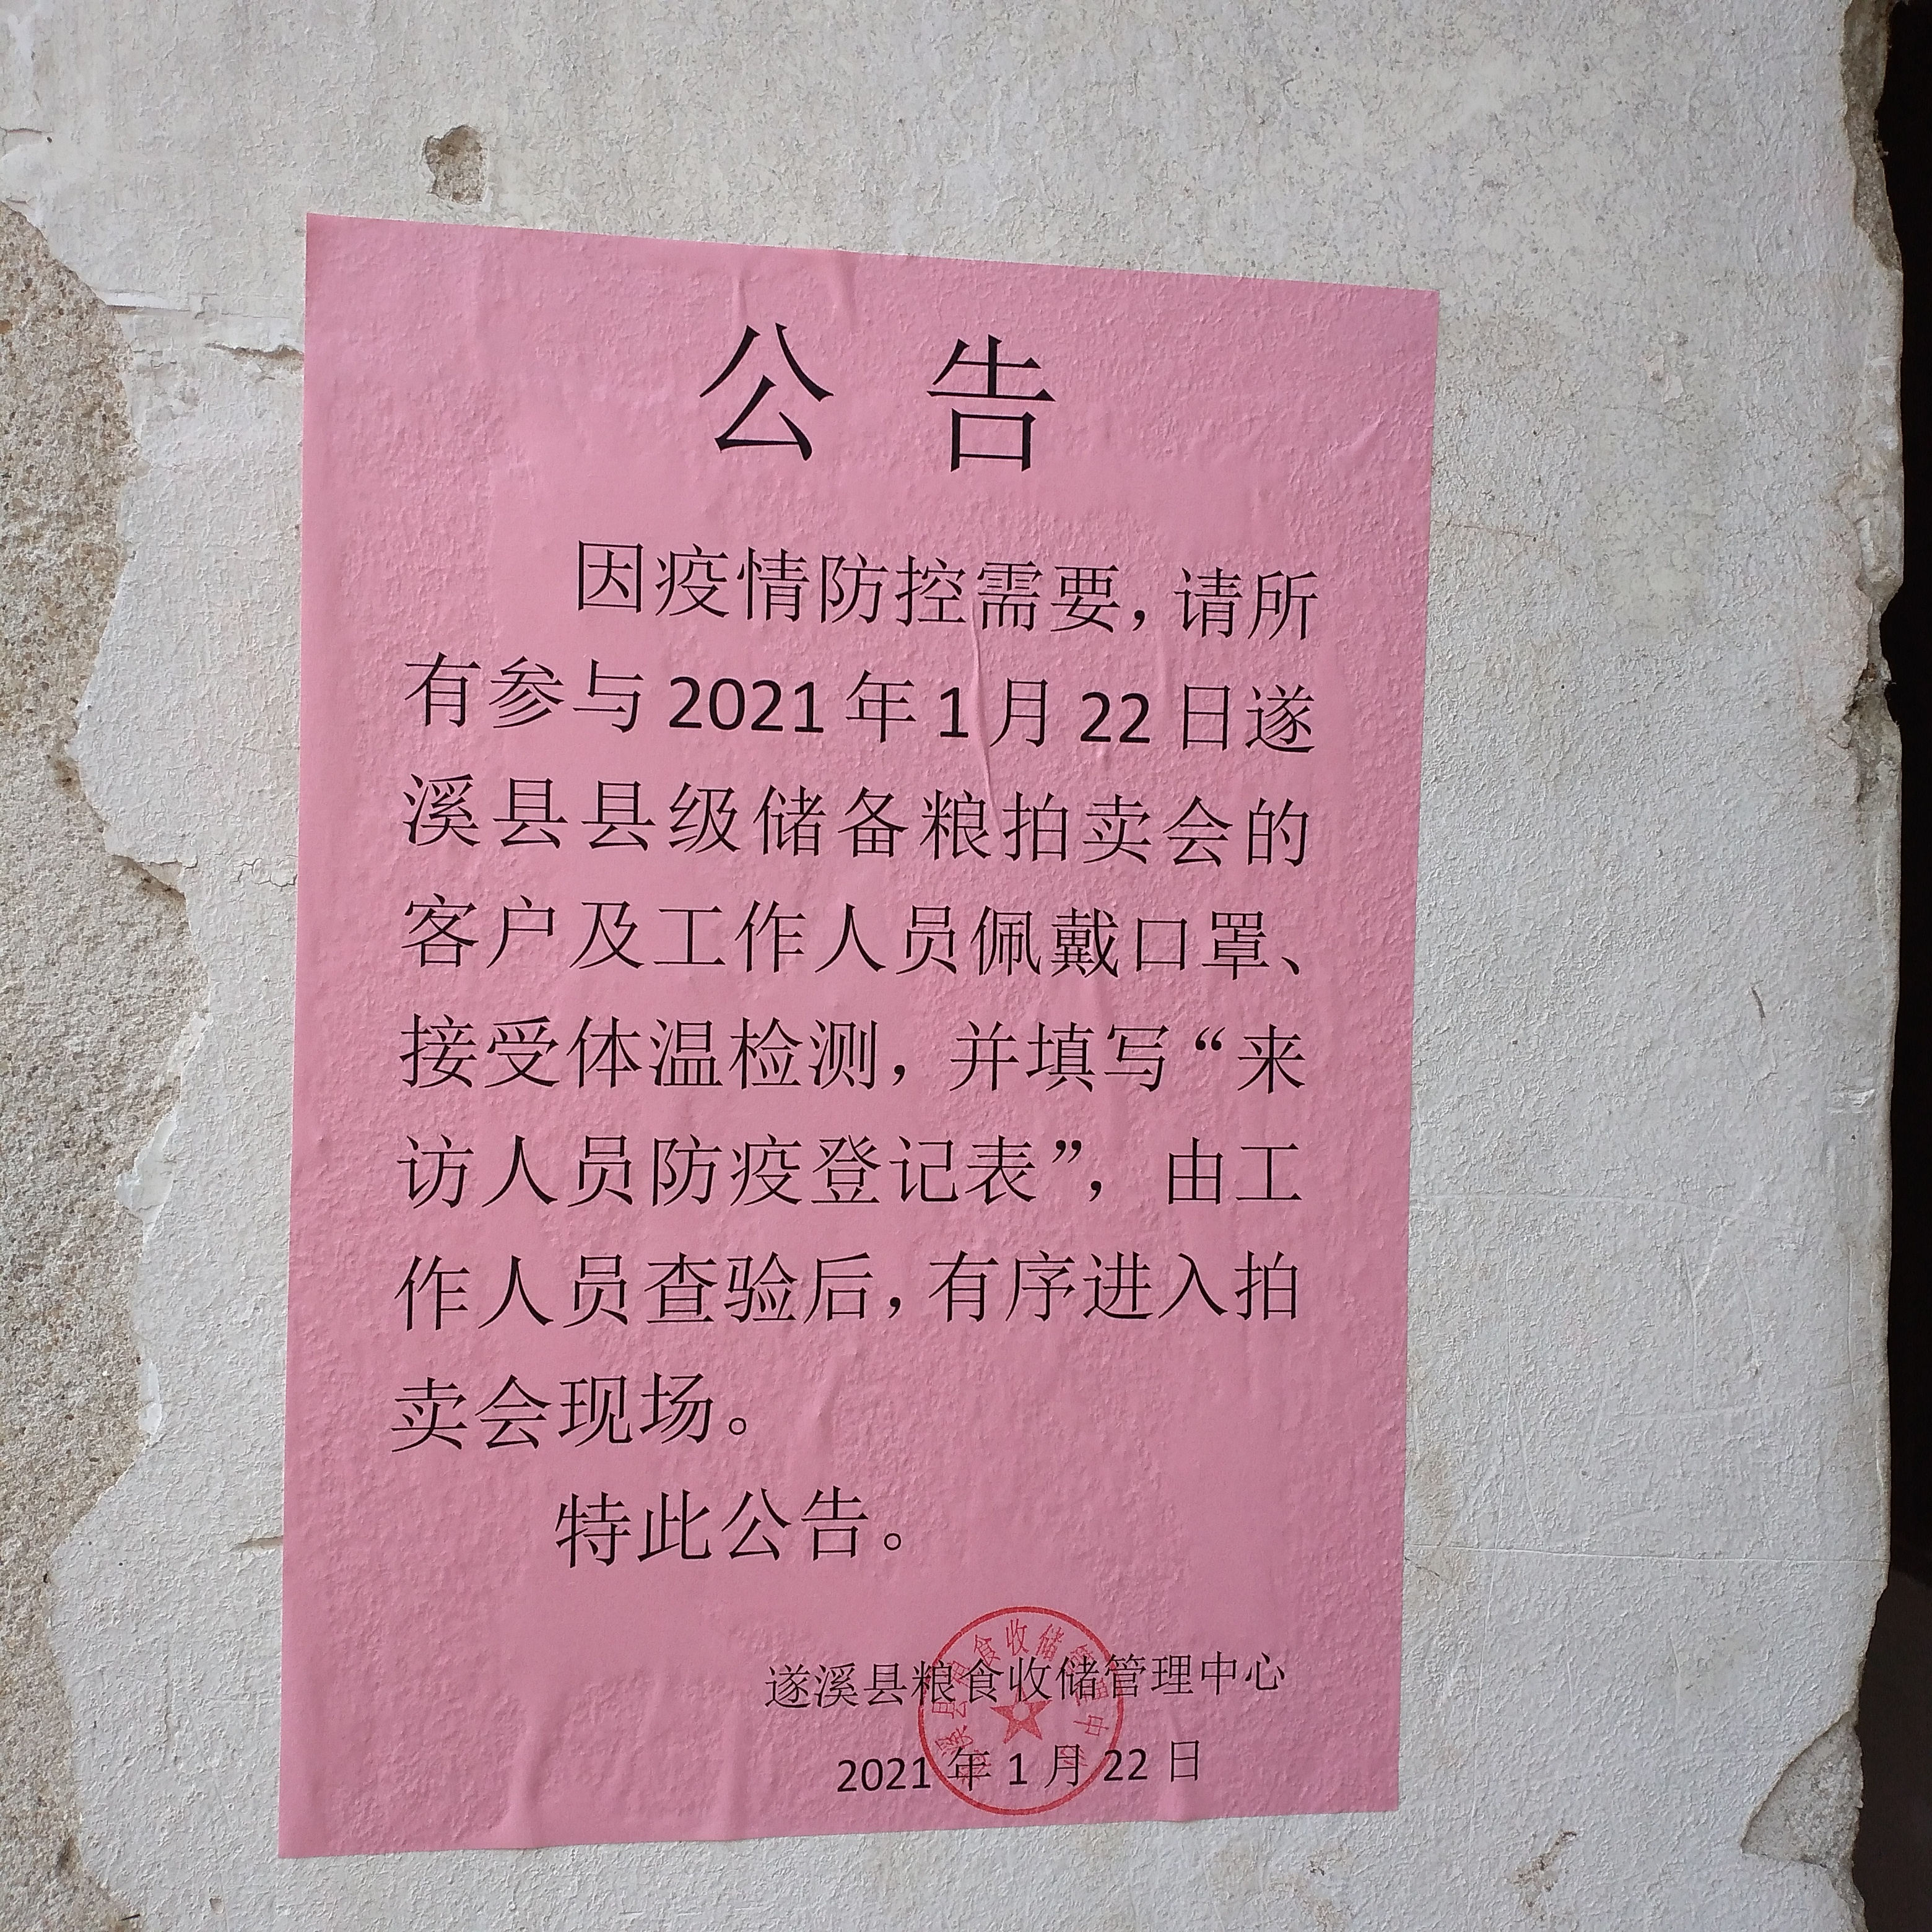 公 告
因疫情防控需要，请所
有参与 2021 年 1 月 22 日遂
溪县县级储备粮拍卖会的
客户及工作人员佩戴口罩、
接受体温检测，并填写“来
访人员防疫登记表”，由工
作人员查验后，有序进入拍
卖会现场。
特此公告。
遂溪县粮食收储管理中心
2021 年 1 月 22 日
遂溪县粮食收储管理中心